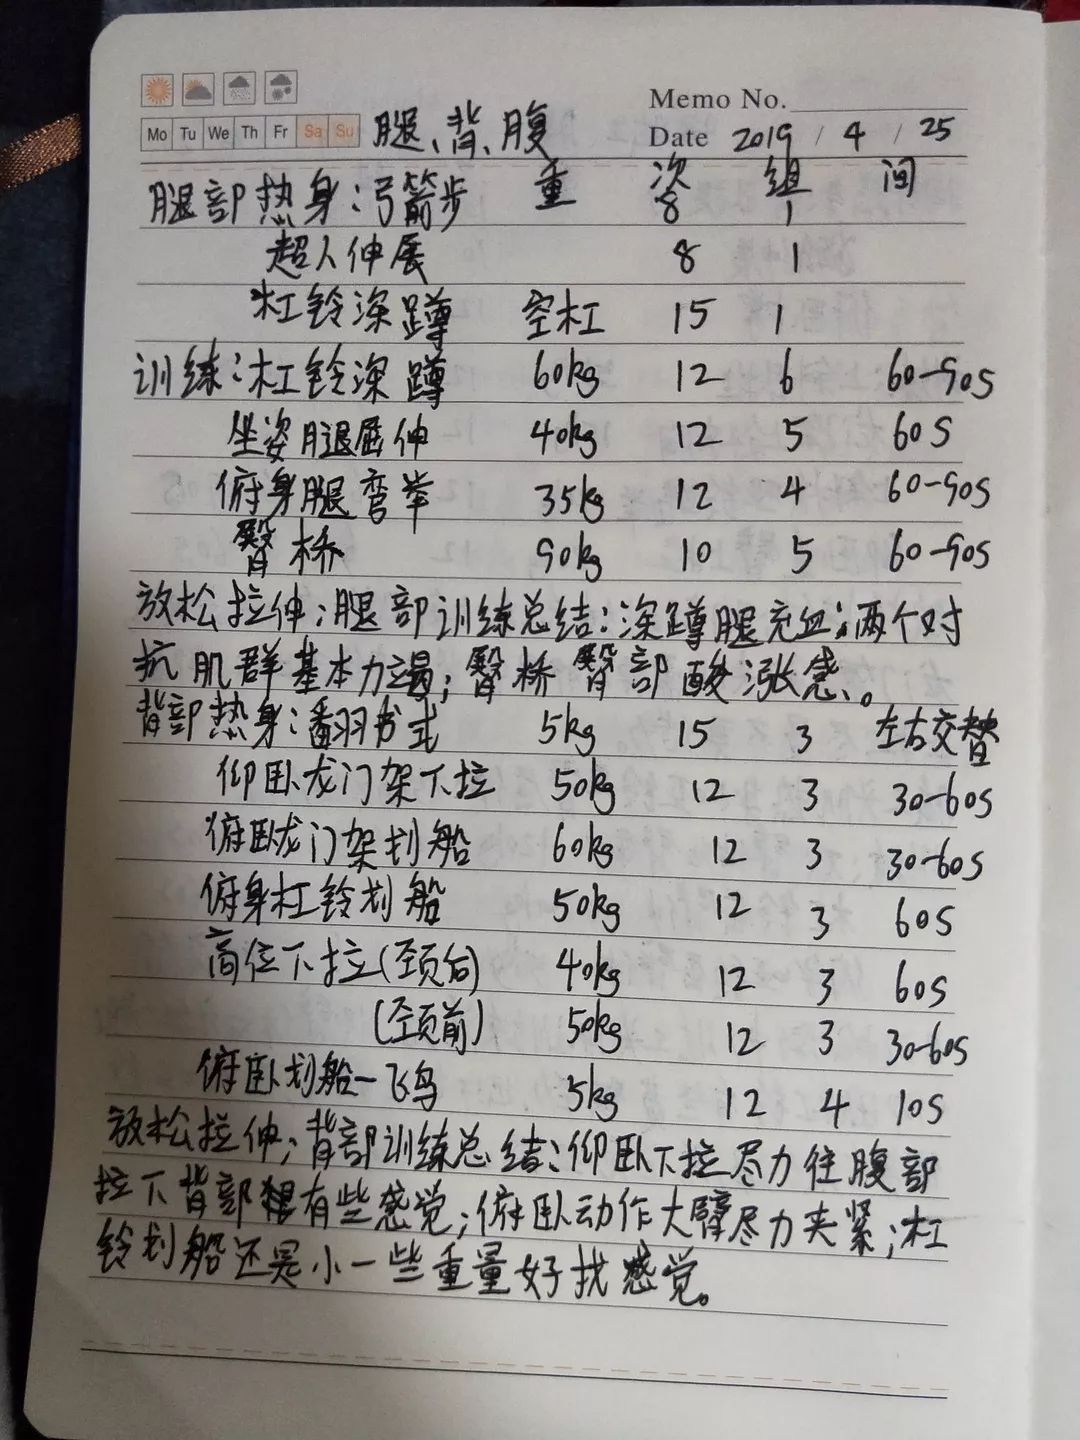 Memo No.
Mo Tu We Th Fr Sa Su 腿、背、腹 Date 2019 / 4 / 25
重 次 组 间
腿部热身:弓箭步 8 1
超人伸展 8 1
杠铃深蹲 空杠 15 1
训练:杠铃深蹲 60kg 12 6 60-90S
坐姿腿屈伸 40kg 12 5 60S
俯身腿弯举 35kg 12 4 60-90S
臀桥 90kg 10 5 60-90S
放松拉伸;腿部训练总结:深蹲腿充血;两个对
抗肌群基本力竭;臀桥臀部酸涨感、。
背部热身:翻羽书式 5kg 15 3 左右交替
仰卧龙门架下拉 50kg 12 3 30-60S
俯卧龙门架划船 60kg 12 3 30-60S
俯身杠铃划船 50kg 12 3 60S
高位下拉(颈后) 40kg 12 3 60S
(颈前) 50kg 12 3 30-60S
俯卧划船-飞鸟 5kg 12 4 10S
放松拉伸;背部训练总结:仰卧下拉尽力往腹部
拉下背部很有些感觉;俯卧动作大臂尽力夹紧;杠
铃划船还是小一些重量好找感觉。